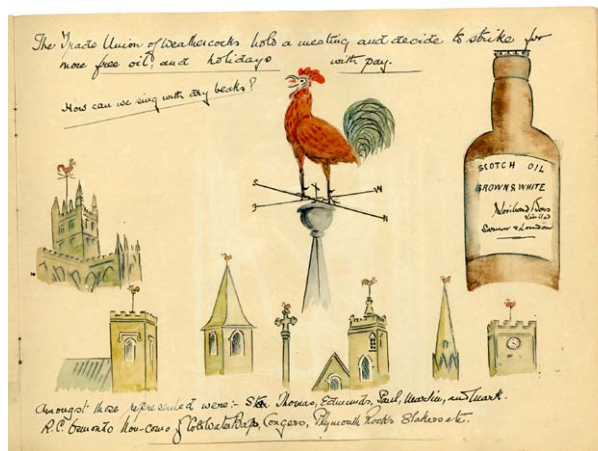 The Trade Union of Weathercocks hold a meeting and decide to strike for
more free oil, and holidays with pay.
How can we sing with dry beaks?
SCOTCH OIL
BROWN & WHITE
Limited
& London
Amongst those represented were:- Thomas, Edmunds, Paul, Martin, and Mark.
R.C. Non-cons & Coldwater Baps, Congers, Plymouth Rocks Shakers etc.